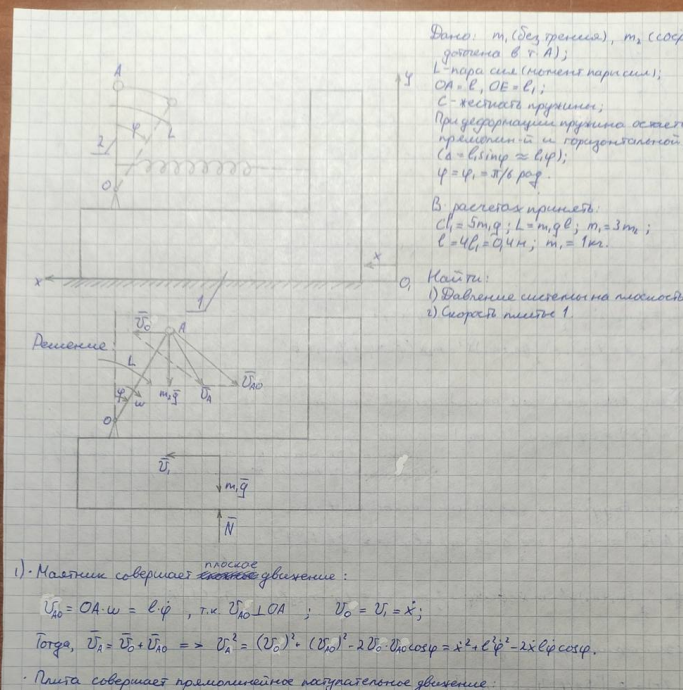 Дано: m₁ (без трения), m₂ (сосре
доточена в т. А);
L - пара сил (момент пары сил);
OA = l, OE = l₁;
C - жесткость пружины;
При деформации пружина остает
прямолин-й и горизонтальной
(Δ = l₁sinφ ≈ l₁φ);
φ = φ₁ = π/6 рад.
В расчетах принять:
cl₁ = 5m₁g; L = m₁gl; m₁ = 3m₂;
l = 4l₁ = 0,4м; m₁ = 1кг.
Найти:
1) Давление системы на плоскость
2) Скорость плиты 1
A
y
2
φ
L
O
x
x
O₁
1
Решение:
V̄₀
A
L
φ
ω
m₂ḡ
V̄A
V̄AO
O
V̄₁
m₁ḡ
N̄
1) · Маятник совершает плоское движение:
VAO = OA·ω = l·φ̇, т.к. VAO ⊥ OA ; V₀ = V₁ = ẋ;
Тогда, V̄A = V̄₀ + V̄AO => VA² = (V₀)² + (VAO)² - 2V₀·VAO cosφ = ẋ² + l²φ̇² - 2ẋlφ̇cosφ.
· Плита совершает прямолинейное поступательное движение: